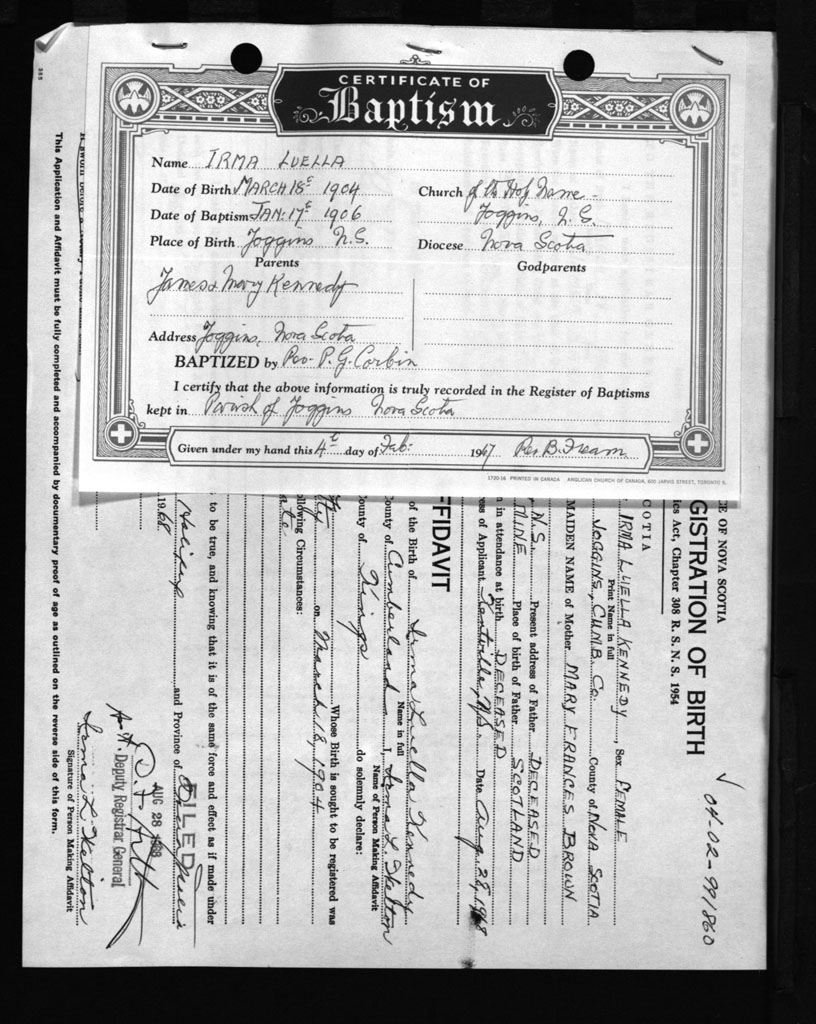 CERTIFICATE OF
Baptism
Name IRMA LUELLA
Date of Birth MARCH 18ᵗ 1904
Church of the Holy Name
Date of Baptism JAN. 17ᵗ 1906
Joggins, N.S.
Place of Birth Joggins N.S.
Diocese Nova Scotia
Parents
Godparents
James & Mary Kennedy
Address Joggins, Nova Scotia
BAPTIZED by Rev. P. G. Corbin
I certify that the above information is truly recorded in the Register of Baptisms
kept in Parish of Joggins Nova Scotia
Given under my hand this 4ᵗ day of Feb. 1967 Rev. B. Fream
1720-16 PRINTED IN CANADA ANGLICAN CHURCH OF CANADA, 600 JARVIS STREET, TORONTO 5.
04-02-991860
CE OF NOVA SCOTIA
GISTRATION OF BIRTH
ics Act, Chapter 308 R. S. N. S. 1954
COTIA
IRMA LUELLA KENNEDY, Sex FEMALE
Print Name in full
JOGGINS, CUMB. Co. County of NOVA SCOTIA
MAIDEN NAME of Mother MARY FRANCES BROWN
N.S. Present address of Father DECEASED
MINE Place of birth of Father SCOTLAND
n in attendance at birth DECEASED
ess of Applicant Kentville, N.S. Date Aug. 28, 1968
FFIDAVIT
of the Birth of Irma Luella Kennedy
Name in full
County of Cumberland I, Irma L. Kelton
Name of Person Making Affidavit
County of Kings do solemnly declare:
Whose Birth is sought to be registered was
on March 18, 1904
ollowing Circumstances:
to be true, and knowing that it is of the same force and effect as if made under
Halifax and Province of
1968
FILED
AUG 28 1968
Deputy Registrar General
Irma L. Kelton
Signature of Person Making Affidavit
This Application and Affidavit must be fully completed and accompanied by documentary proof of age as outlined on the reverse side of this form.